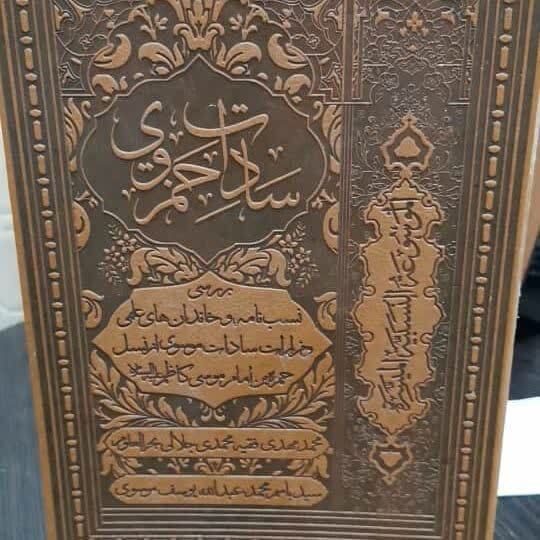 سادات حمزوی
بررسی
نسب نامه و خاندان های علمی
و مزارات سادات موسوی از نسل
حمزه بن امام موسی کاظم علیه السلام
محمد مهدی فقیه محمدی جلالی بحرالعلوم
سید باسم محمد عبدالله یوسف موسوی
الموسوعة النسبیة المیسرة